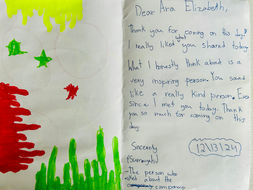 Dear Ara Elizabeth,
Thank you for coming on this day!
I really liked what you shared today.
What I honestly think about is a
very inspiring person. You sound
like a really kind person, Ever
Since I met you today. Thank
you so much for coming on this
day.
Sincerely
12/13/24
- The person who
about the
company